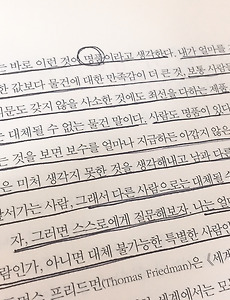 는 바로 이런 것이 명품이라고 생각한다. 내가 얼마를
한 값보다 물건에 대한 만족감이 더 큰 것, 보통 사람들
의문도 갖지 않을 사소한 것에도 최선을 다하는 제품
는 대체될 수 없는 물건 말이다. 사람도 명품이 있다
는 것을 보면 보수를 얼마나 지급하든 아깝지 않은
은 미처 생각지 못한 것을 생각해내고 남과 다른
앞서가는 사람, 그래서 다른 사람으로는 대체될 수
자, 그러면 스스로에게 질문해보자. 나는 얼마
람인가, 아니면 대체 불가능한 특별한 사람인가
머스 프리드먼(Thomas Friedman)은 《세계
세계에서는 모